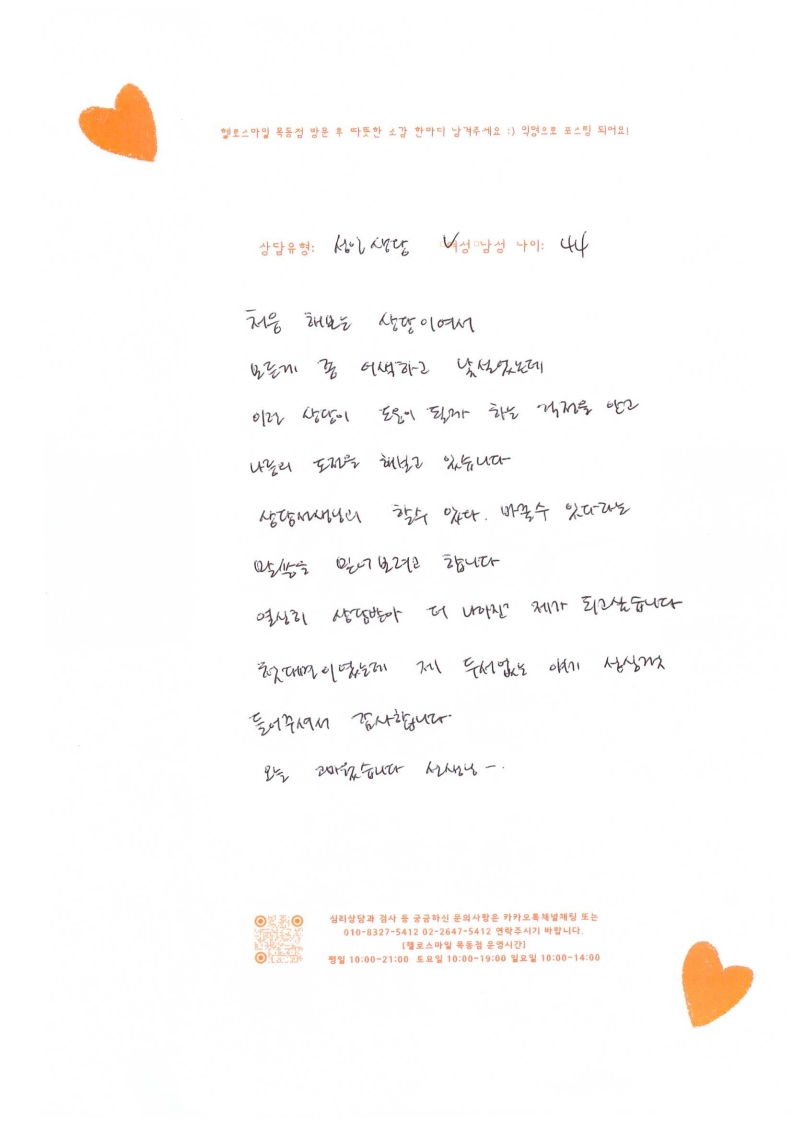 헬로스마일 목동점 방문 후 따뜻한 소감 한마디 남겨주세요 :) 익명으로 포스팅 되어요!
상담유형: 성인상담 ✓여성 ○남성 나이: 44
처음 해보는 상담이여서
모든게 좀 어색하고 낯설었는데
이런 상담이 도움이 될까 하는 걱정을 안고
나름의 도전을 해보고 있습니다
상담선생님의 할수 있다. 바꿀수 있다라는
말씀을 믿어보려고 합니다
열심히 상담받아 더 나아진 제가 되고싶습니다
첫대면이였는데 제 두서없는 얘기 성심껏
들어주셔서 감사합니다
오늘 고마웠습니다 선생님 -.
심리상담과 검사 등 궁금하신 문의사항은 카카오톡채널채팅 또는
010-8327-5412 02-2647-5412 연락주시기 바랍니다.
[헬로스마일 목동점 운영시간]
평일 10:00~21:00 토요일 10:00~19:00 일요일 10:00~14:00